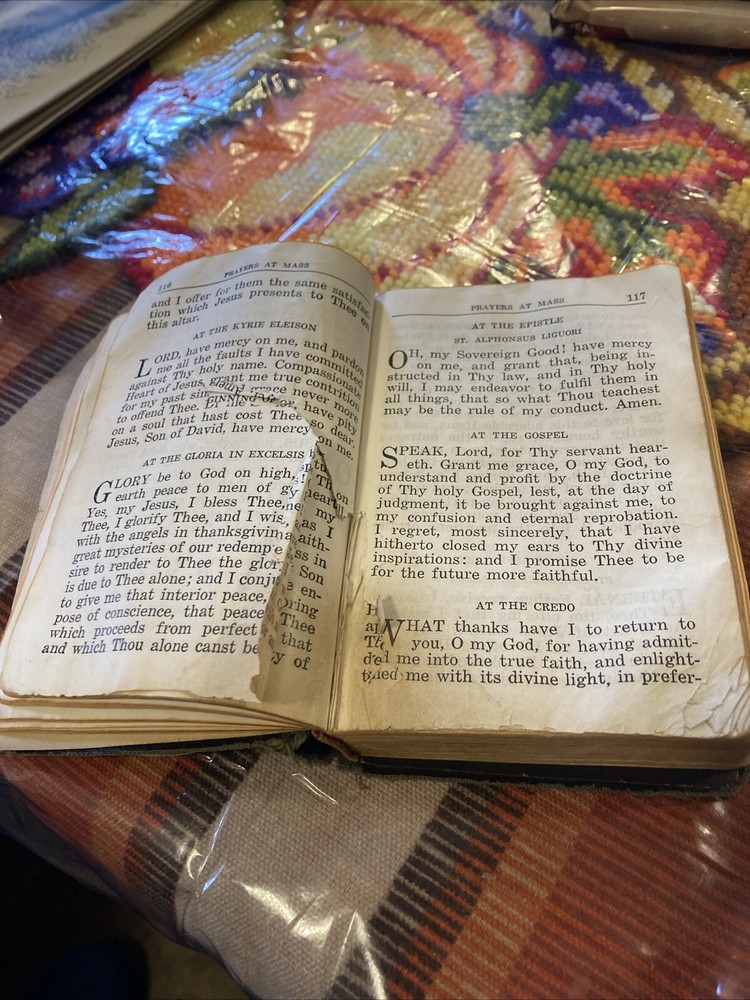 116
PRAYERS AT MASS
and I offer for them the same satisfac-
tion which Jesus presents to Thee on
this altar.
AT THE KYRIE ELEISON
LORD, have mercy on me, and pardon
me all the faults I have committed
against Thy holy name. Compassionate
Heart of Jesus, grant me true contrition
for my past sin grace never more
to offend Thee. have pity
on a soul that hast cost Thee so dear.
Jesus, Son of David, have mercy on me.
AT THE GLORIA IN EXCELSIS
GLORY be to God on high,
earth peace to men of g
Yes, my Jesus, I bless Thee,
Thee, I glorify Thee, and I wis
with the angels in thanksgivin
great mysteries of our redemp
sire to render to Thee the glor
is due to Thee alone; and I conj
to give me that interior peace,
pose of conscience, that peace
which proceeds from perfect
and which Thou alone canst be
my
as I
aith-
ss in
Son
e en-
pring
Thee
that
y of
PRAYERS AT MASS
117
AT THE EPISTLE
ST. ALPHONSUS LIGUORI
OH, my Sovereign Good! have mercy
on me, and grant that, being in-
structed in Thy law, and in Thy holy
will, I may endeavor to fulfil them in
all things, that so what Thou teachest
may be the rule of my conduct. Amen.
AT THE GOSPEL
SPEAK, Lord, for Thy servant hear-
eth. Grant me grace, O my God, to
understand and profit by the doctrine
of Thy holy Gospel, lest, at the day of
judgment, it be brought against me, to
my confusion and eternal reprobation.
I regret, most sincerely, that I have
hitherto closed my ears to Thy divine
inspirations: and I promise Thee to be
for the future more faithful.
AT THE CREDO
WHAT thanks have I to return to
you, O my God, for having admit-
me into the true faith, and enlight-
me with its divine light, in prefer-